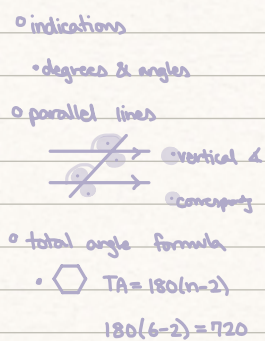 indications
• degrees & angles
parallel lines
vertical ∠
total angle formula
• TA = 180(n-2)
180(6-2) = 720